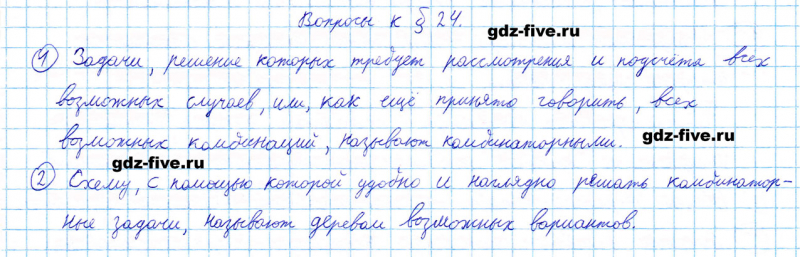 Вопросы к § 24.
gdz-five.ru
1) Задачи, решение которых требует рассмотрения и подсчёта всех
возможных случаев, или, как ещё принято говорить, всех
возможных комбинаций, называют комбинаторными.
gdz-five.ru
gdz-five.ru
2) Схему, с помощью которой удобно и наглядно решать комбинатор-
ные задачи, называют деревом возможных вариантов.